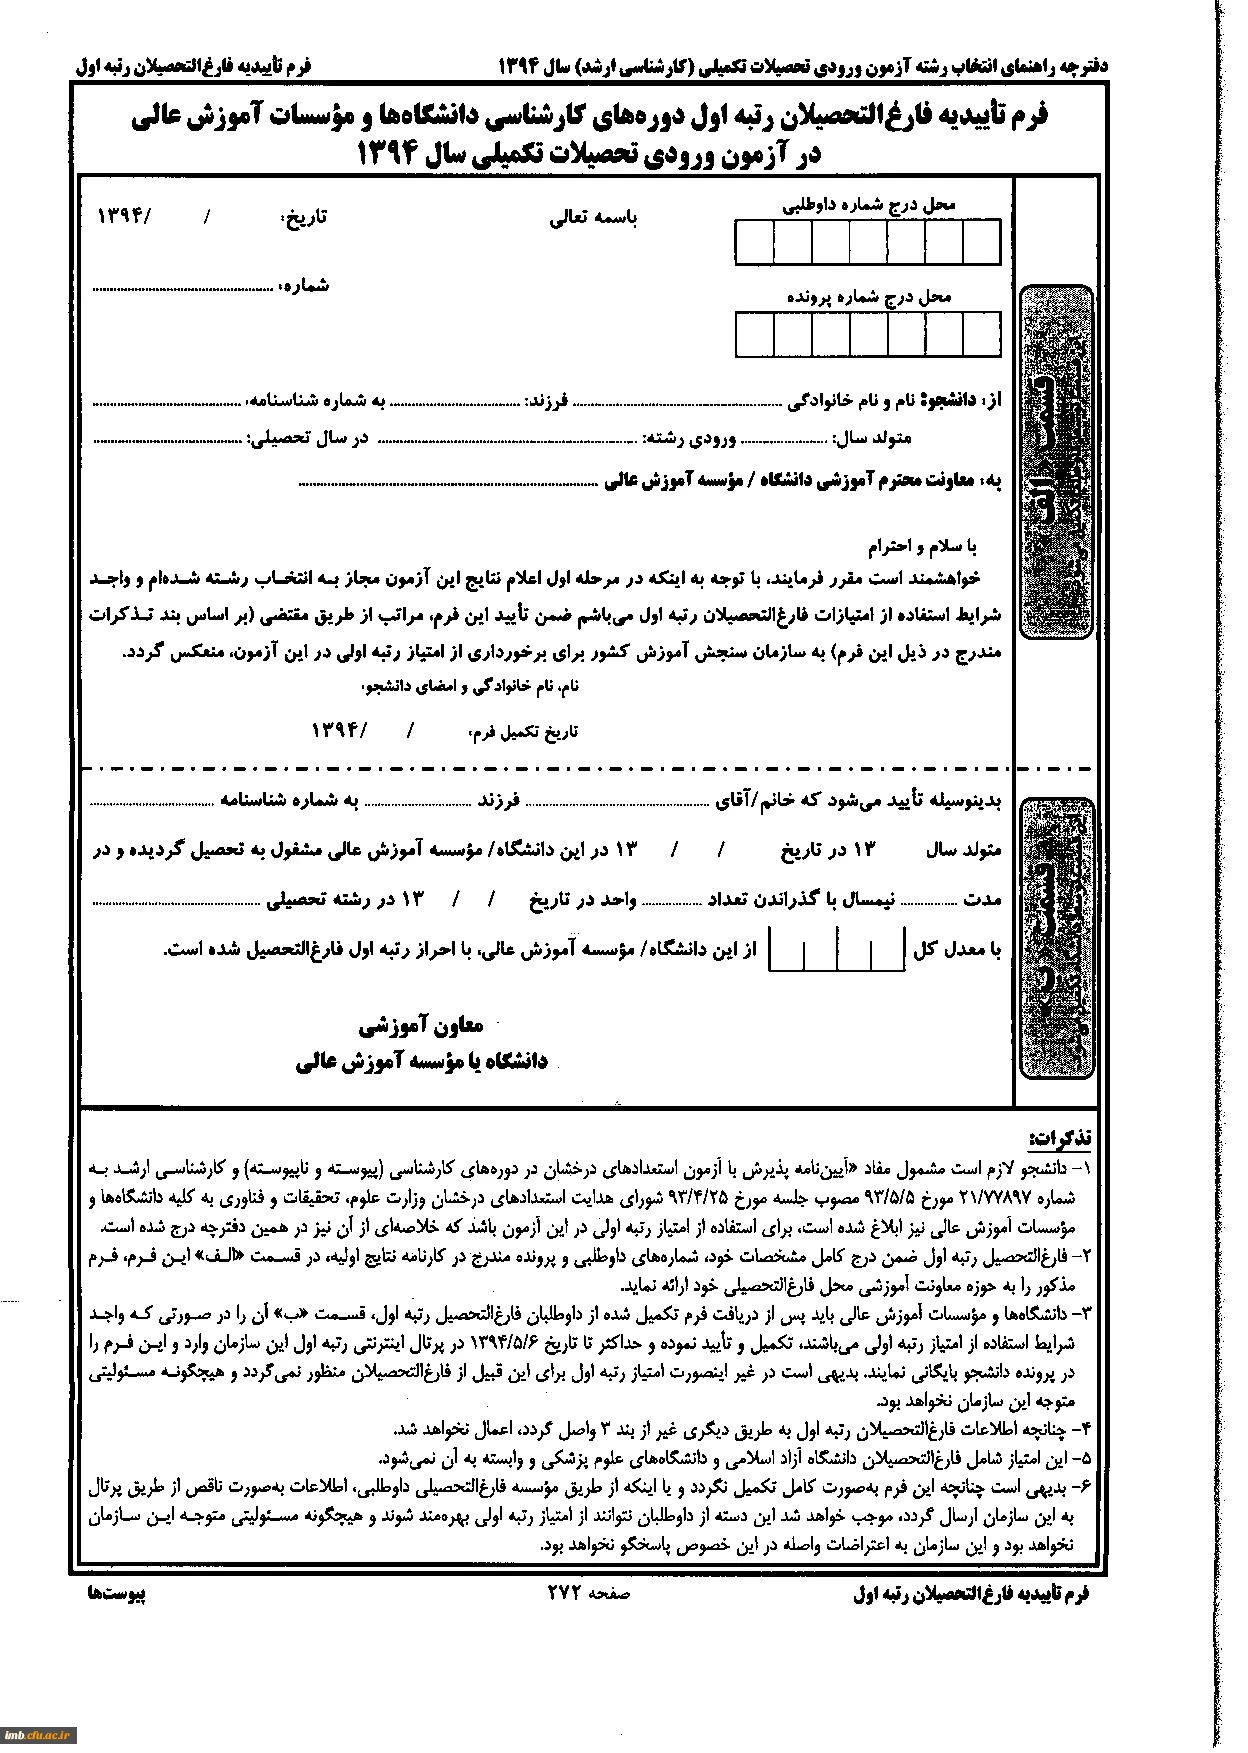 دفترچه راهنمای انتخاب رشته آزمون ورودی تحصیلات تکمیلی (کارشناسی ارشد) سال ۱۳۹۴
فرم تأییدیه فارغ‌التحصیلان رتبه اول
فرم تأییدیه فارغ‌التحصیلان رتبه اول دوره‌های کارشناسی دانشگاه‌ها و مؤسسات آموزش عالی
در آزمون ورودی تحصیلات تکمیلی سال ۱۳۹۴
محل درج شماره داوطلبی
باسمه تعالی
تاریخ: / /۱۳۹۴
شماره: ........
محل درج شماره پرونده
قسمت «الف»
از: دانشجو: نام و نام خانوادگی ........ فرزند: ........ به شماره شناسنامه: ........
متولد سال: ........ ورودی رشته: ........ در سال تحصیلی: ........
به: معاونت محترم آموزشی دانشگاه / مؤسسه آموزش عالی ........
با سلام و احترام
خواهشمند است مقرر فرمایند، با توجه به اینکه در مرحله اول اعلام نتایج این آزمون مجاز به انتخاب رشته شده‌ام و واجد
شرایط استفاده از امتیازات فارغ‌التحصیلان رتبه اول می‌باشم ضمن تأیید این فرم، مراتب از طریق مقتضی (بر اساس بند تذکرات
مندرج در ذیل این فرم) به سازمان سنجش آموزش کشور برای برخورداری از امتیاز رتبه اولی در این آزمون، منعکس گردد.
نام، نام خانوادگی و امضای دانشجو:
تاریخ تکمیل فرم: / /۱۳۹۴
قسمت «ب»
بدینوسیله تأیید می‌شود که خانم/آقای ........ فرزند ........ به شماره شناسنامه ........
متولد سال ۱۳ در تاریخ / / ۱۳ در این دانشگاه/ مؤسسه آموزش عالی مشغول به تحصیل گردیده و در
مدت ........ نیمسال با گذراندن تعداد ........ واحد در تاریخ / / ۱۳ در رشته تحصیلی ........
با معدل کل از این دانشگاه/ مؤسسه آموزش عالی، با احراز رتبه اول فارغ‌التحصیل شده است.
معاون آموزشی
دانشگاه یا مؤسسه آموزش عالی
تذکرات:
۱- دانشجو لازم است مشمول مفاد «آیین‌نامه پذیرش با آزمون استعدادهای درخشان در دوره‌های کارشناسی (پیوسته و ناپیوسته) و کارشناسی ارشد به
شماره ۲۱/۷۷۸۹۷ مورخ ۹۳/۵/۵ مصوب جلسه مورخ ۹۳/۴/۲۵ شورای هدایت استعدادهای درخشان وزارت علوم، تحقیقات و فناوری به کلیه دانشگاه‌ها و
مؤسسات آموزش عالی نیز ابلاغ شده است، برای استفاده از امتیاز رتبه اولی در این آزمون باشد که خلاصه‌ای از آن نیز در همین دفترچه درج شده است.
۲- فارغ‌التحصیل رتبه اول ضمن درج کامل مشخصات خود، شماره‌های داوطلبی و پرونده مندرج در کارنامه نتایج اولیه، در قسمت «الف» این فرم، فرم
مذکور را به حوزه معاونت آموزشی محل فارغ‌التحصیلی خود ارائه نماید.
۳- دانشگاه‌ها و مؤسسات آموزش عالی باید پس از دریافت فرم تکمیل شده از داوطلبان فارغ‌التحصیل رتبه اول، قسمت «ب» آن را در صورتی که واجد
شرایط استفاده از امتیاز رتبه اولی می‌باشند، تکمیل و تأیید نموده و حداکثر تا تاریخ ۱۳۹۴/۵/۶ در پرتال اینترنتی رتبه اول این سازمان وارد و این فرم را
در پرونده دانشجو بایگانی نمایند. بدیهی است در غیر اینصورت امتیاز رتبه اول برای این قبیل از فارغ‌التحصیلان منظور نمی‌گردد و هیچگونه مسئولیتی
متوجه این سازمان نخواهد بود.
۴- چنانچه اطلاعات فارغ‌التحصیلان رتبه اول به طریق دیگری غیر از بند ۳ واصل گردد، اعمال نخواهد شد.
۵- این امتیاز شامل فارغ‌التحصیلان دانشگاه آزاد اسلامی و دانشگاه‌های علوم پزشکی و وابسته به آن نمی‌شود.
۶- بدیهی است چنانچه این فرم به‌صورت کامل تکمیل نگردد و یا اینکه از طریق مؤسسه فارغ‌التحصیلی داوطلبی، اطلاعات به‌صورت ناقص از طریق پرتال
به این سازمان ارسال گردد، موجب خواهد شد این دسته از داوطلبان نتوانند از امتیاز رتبه اولی بهره‌مند شوند و هیچگونه مسئولیتی متوجه این سازمان
نخواهد بود و این سازمان به اعتراضات واصله در این خصوص پاسخگو نخواهد بود.
فرم تأییدیه فارغ‌التحصیلان رتبه اول
صفحه ۲۷۲
پیوست‌ها
imb.cfu.ac.ir